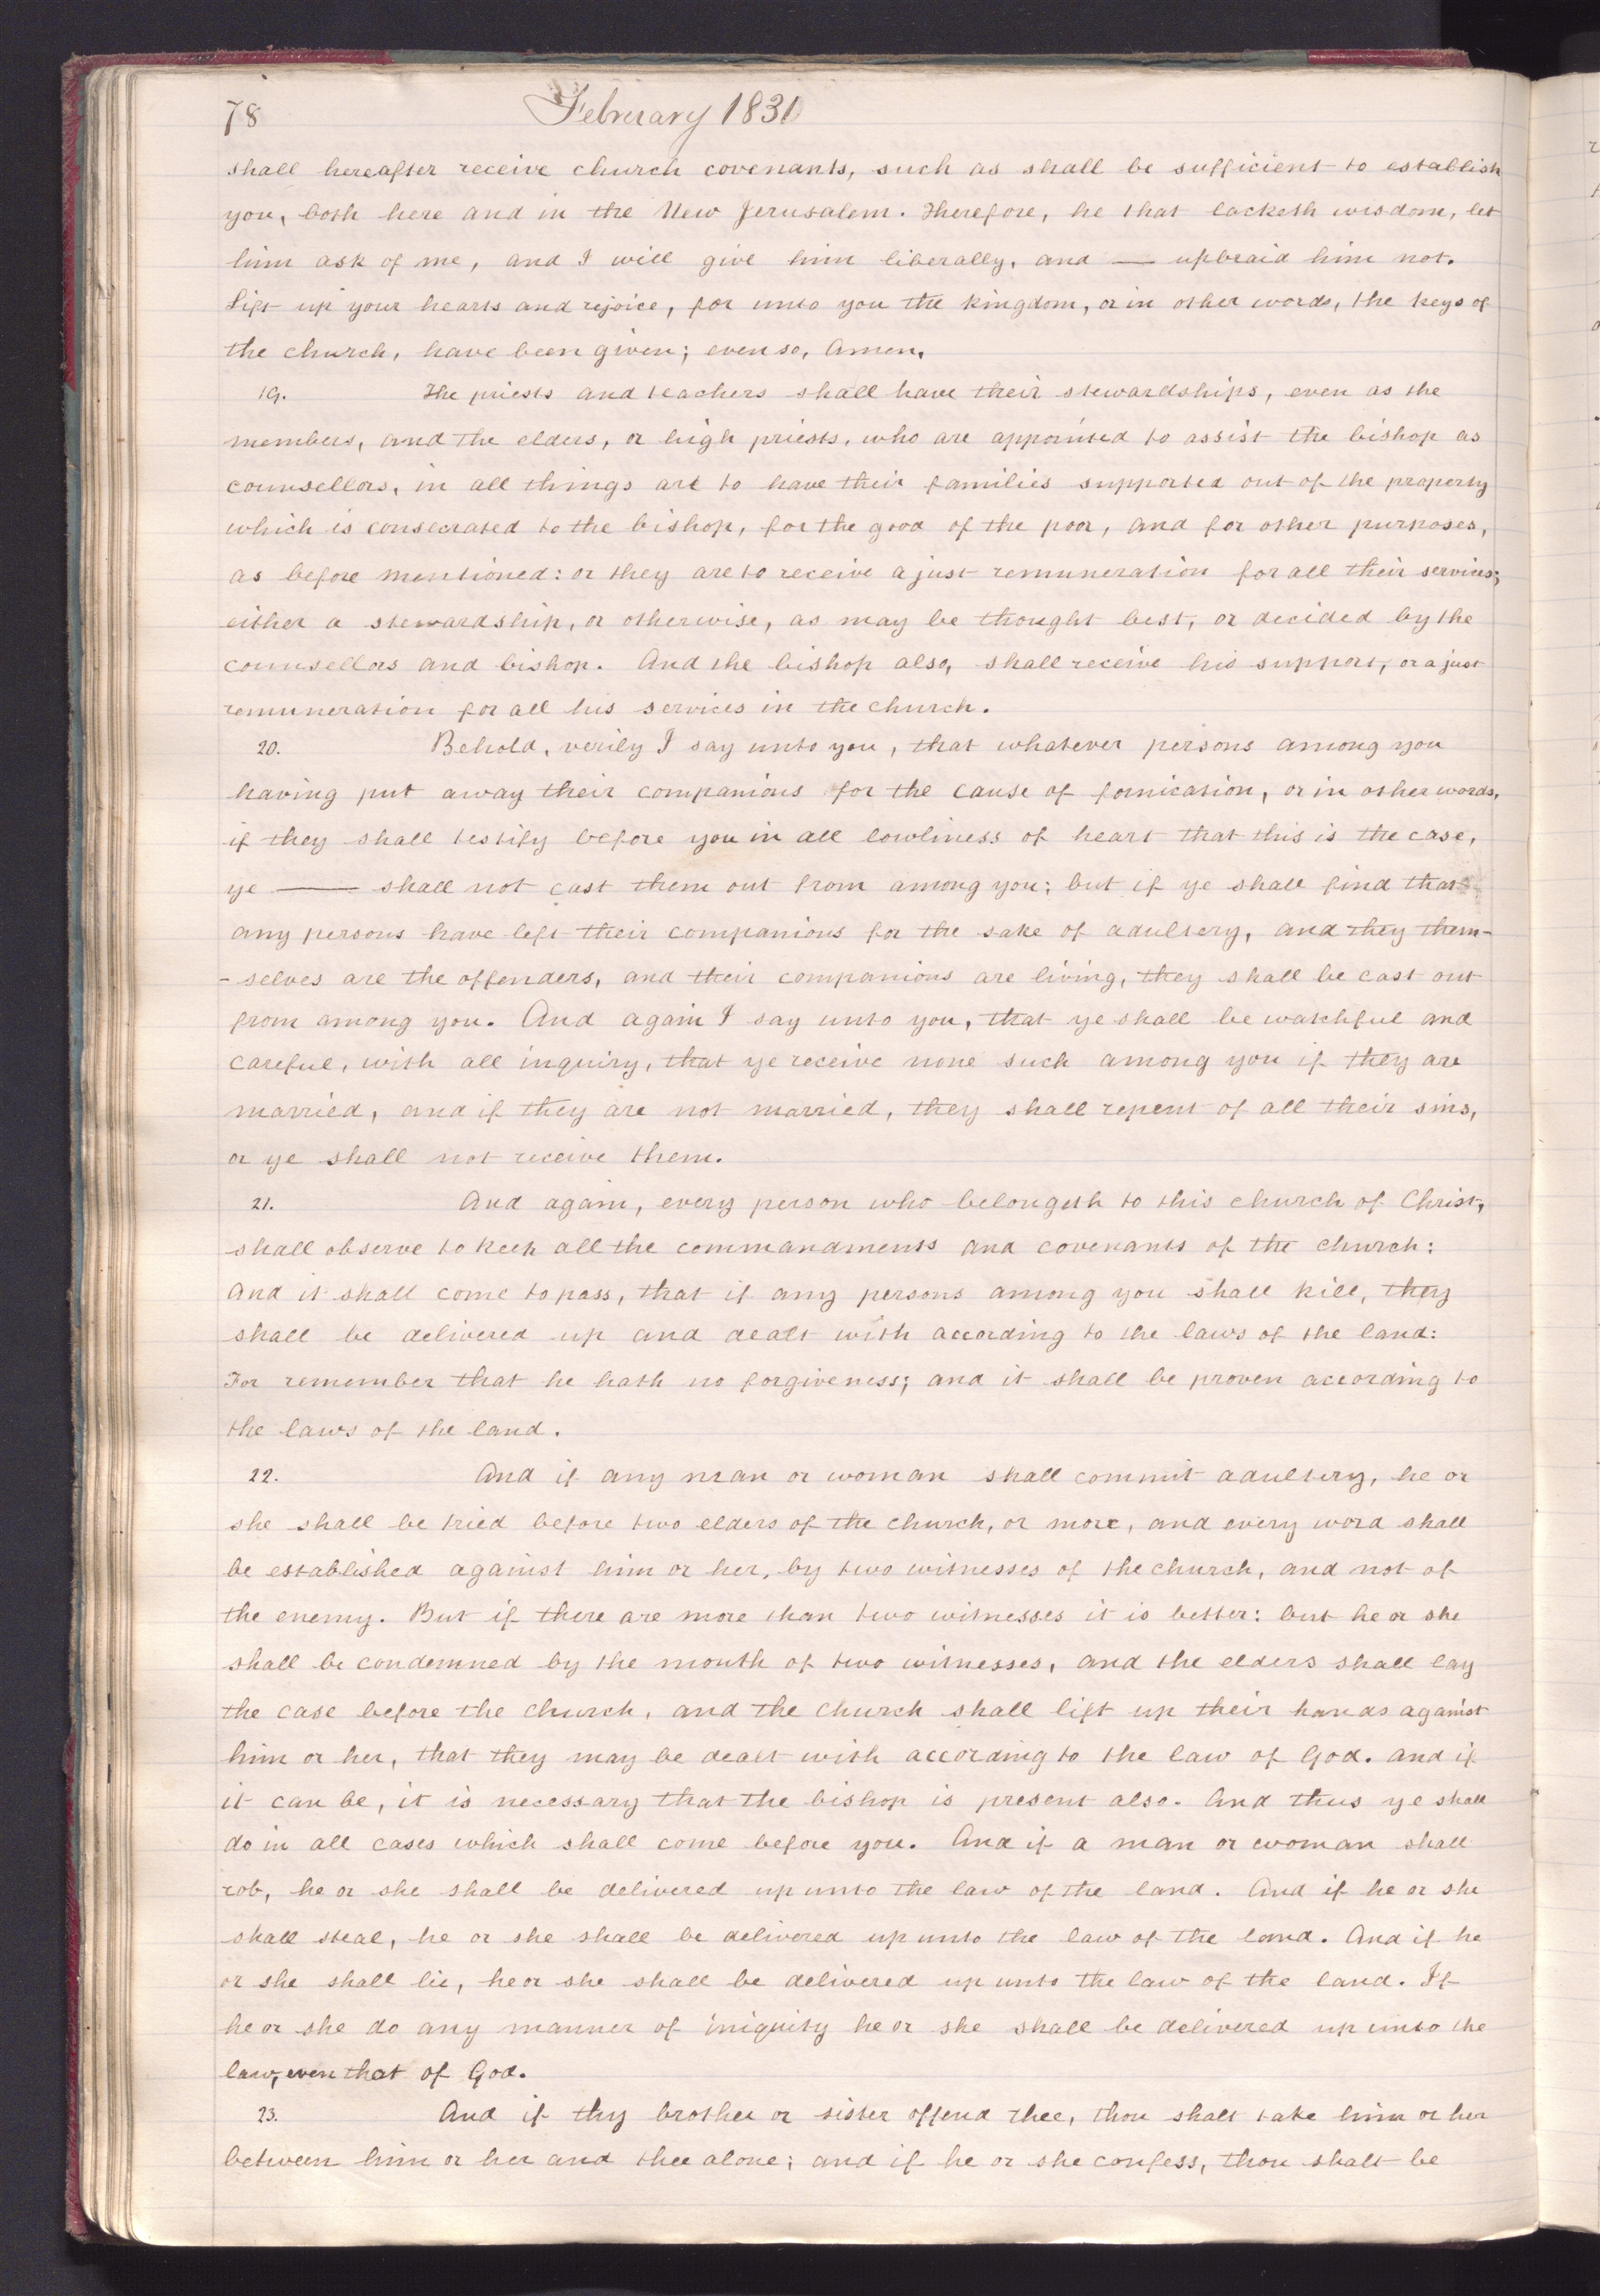 78
February 1831
shall hereafter receive church covenants, such as shall be sufficient to establish
you, both here and in the New Jerusalem. Therefore, he that lacketh wisdom, let
him ask of me, and I will give him liberally, and — upbraid him not.
Lift up your hearts and rejoice, for unto you the kingdom, or in other words, the keys of
the church, have been given; even so, Amen.
19. The priests and teachers shall have their stewardships, even as the
members, and the elders, or high priests, who are appointed to assist the bishop as
counsellors, in all things are to have their families supported out of the property
which is consecrated to the bishop, for the good of the poor, and for other purposes,
as before mentioned: or they are to receive a just remuneration for all their services;
either a stewardship, or otherwise, as may be thought best, or decided by the
counsellors and bishop. And the bishop also, shall receive his support, or a just
remuneration for all his services in the church.
20. Behold, verily I say unto you, that whatever persons among you
having put away their companions for the cause of fornication, or in other words,
if they shall testify before you in all lowliness of heart that this is the case,
ye — shall not cast them out from among you; but if ye shall find that
any persons have left their companions for the sake of adultery, and they them-
-selves are the offenders, and their companions are living, they shall be cast out
from among you. And again I say unto you, that ye shall be watchful and
careful, with all inquiry, that ye receive none such among you if they are
married, and if they are not married, they shall repent of all their sins,
or ye shall not receive them.
21. And again, every person who belongeth to this church of Christ,
shall observe to keep all the commandments and covenants of the church:
And it shall come to pass, that if any persons among you shall kill, they
shall be delivered up and dealt with according to the laws of the land:
For remember that he hath no forgiveness; and it shall be proven according to
the laws of the land.
22. And if any man or woman shall commit adultery, he or
she shall be tried before two elders of the church, or more, and every word shall
be established against him or her, by two witnesses of the church, and not of
the enemy. But if there are more than two witnesses it is better: but he or she
shall be condemned by the mouth of two witnesses, and the elders shall lay
the case before the church, and the church shall lift up their hands against
him or her, that they may be dealt with according to the law of God. And if
it can be, it is necessary that the bishop is present also. And thus ye shall
do in all cases which shall come before you. And if a man or woman shall
rob, he or she shall be delivered up unto the law of the land. And if he or she
shall steal, he or she shall be delivered up unto the law of the land. And if he
or she shall lie, he or she shall be delivered up unto the law of the land. If
he or she do any manner of iniquity he or she shall be delivered up unto the
law, even that of God.
23. And if thy brother or sister offend thee, thou shalt take him or her
between him or her and thee alone; and if he or she confess, thou shalt be